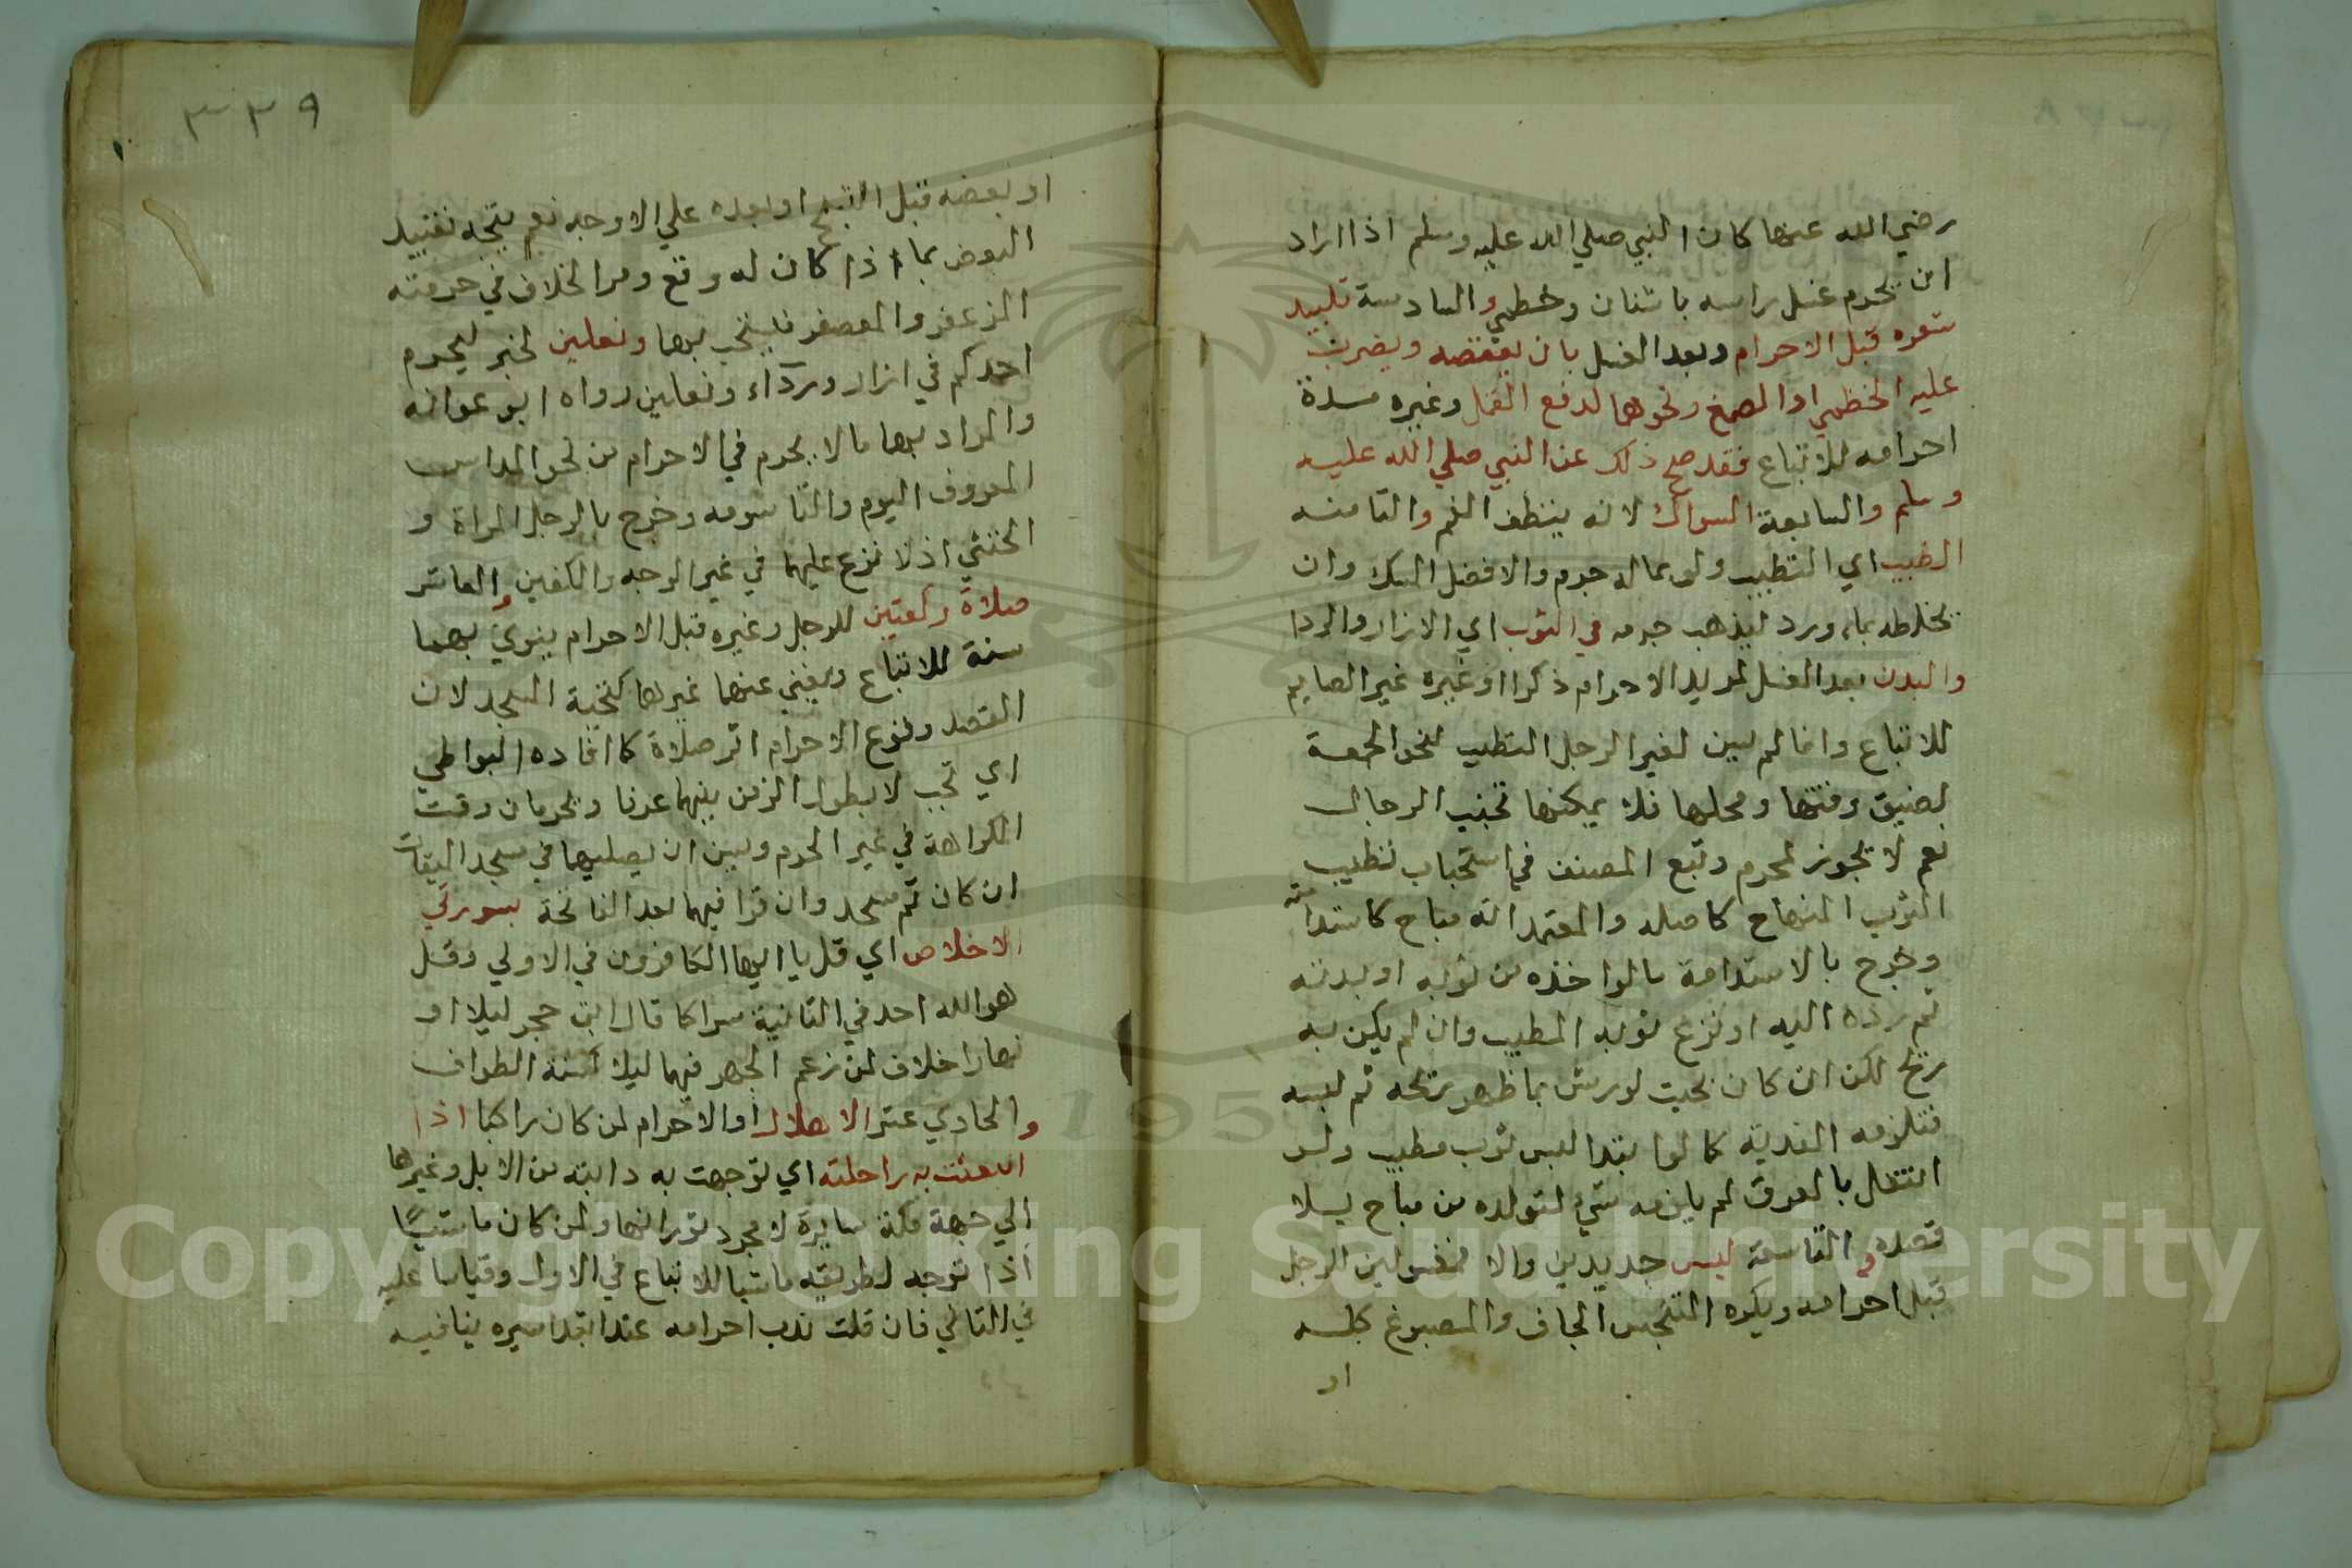 رضي الله عنها كان النبي صلي الله عليه وسلم اذا اراد
ان يحرم غسل راسه باشنان وخطمي والسادسة تلبيد
شعره قبل الاحرام وبعد الغسل بان يعقصه ويضرب
عليه الخطمي او الصمغ ونحوهما لدفع القمل وغيره مدة
احرامه للاتباع فقد صح ذلك عن النبي صلي الله عليه
وسلم والسابعة السواك لانه ينظف الفم والثامنه
الطيب اي التطيب ولو بماله جرم والافضل المسك وان
يخلطه بماء ورد ليذهب جرمه في الثوب اي الازار والردا
والبدن بعد الغسل لمريد الاحرام ذكرا او غيره غير الصايم
للاتباع وانما لم يسن لغير الرجل التطيب لنحو الجمعة
لضيق وقتها ومحلها فلا يمكنها تجنب الرجال
نعم لا يجوز لمحرم وتبع المصنف في استحباب تطييب
الثوب المنهاج كاصله والمعتمد انه مباح كاستدامته
وخرج بالاستدامة مالو اخذه من ثوبه او بدنه
ثم رده اليه او نزع ثوبه المطيب وان لم يكن به
ريح لكن ان كان بحيث لورش بما ظهر ريحه ثم لبسه
فتلزمه الفدية كما لو ابتدا لبس ثوب مطيب ولو
انتقل بالعرق لم يلزمه شيء لتولده من مباح بلا
قصده والتاسعة لبس جديدين والا فمغسولين الرجل
قبل احرامه ويكره المتنجس الجاف والمصبوغ كله
او
٣٣٩
او بعضه قبل النسج او بعده علي الاوجه نعم يتجه تقييد
البعض بما اذا كان له وقع ومر الخلاف في حرمته
المزعفر والمعصفر فيتجنبهما ونعلين لخبر ليحرم
احدكم في ازار ورداء ونعلين رواه ابو عوانه
والمراد بهما مالا يحرم في الاحرام من نحو المداس
المعروف اليوم والتاسومه وخرج بالرجل المراة و
الخنثي اذ لا نزع عليهما في غير الوجه والكفين والعاشر
صلاة ركعتين للرجل وغيره قبل الاحرام ينوي بهما
سنة للاتباع ويغني عنهما غيرها كتحية المسجد لان
القصد وقوع الاحرام اثر صلاة كما افاده البواطي
اي تجب لا يطول الزمن بينهما عرفا ويحرمان وقت
الكراهة في غير الحرم ويسن ان يصليهما في مسجد الميقات
ان كان ثم مسجد وان قرا فيهما بعد الفاتحة بسورتي
الاخلاص اي قل يا ايها الكافرون في الاولي وقل
هو الله احد في الثانية سرا كما قال ابن حجر ليلا او
نهارا خلاف لمن زعم الجهر فيهما ليلا كسنة الطواف
والحادي عشر الاهلال او الاحرام لمن كان راكبا اذا
انبعثت به راحلته اي توجهت به دابته من الابل وغيرها
الي جهة مكة سايرة لا مجرد ثورانها ولمن كان ماشيًا
اذا توجه لطريقه ماشيا للاتباع في الاول وقياسا عليه
في الثاني فان قلت ندب احرامه عند ابتدا سيره ينافيه